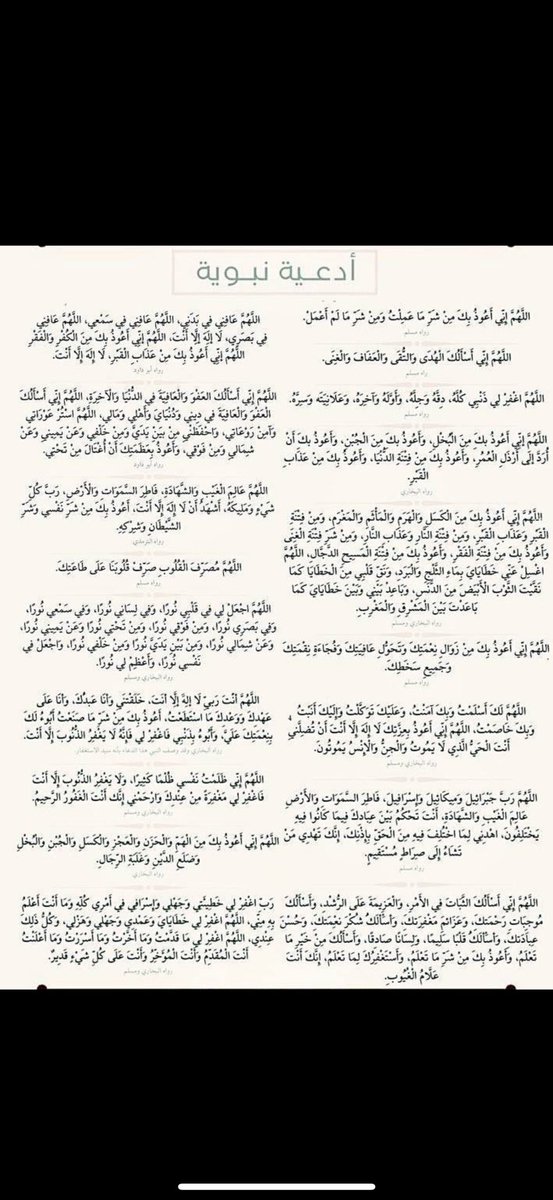 أدعـية نبـوية
اللَّهُمَّ إِنِّي أَعُوذُ بِكَ مِنْ شَرِّ مَا عَمِلْتُ وَمِنْ شَرِّ مَا لَمْ أَعْمَلْ.
رواه مسلم
اللَّهُمَّ إِنِّي أَسْأَلُكَ الْهُدَى وَالتُّقَى وَالْعَفَافَ وَالْغِنَى.
راه مسلم
اللَّهُمَّ اغْفِرْ لِي ذَنْبِي كُلَّهُ، دِقَّهُ وَجِلَّهُ، وَأَوَّلَهُ وَآخِرَهُ، وَعَلَانِيَتَهُ وَسِرَّهُ.
رواه مسلم
اللَّهُمَّ إِنِّي أَعُوذُ بِكَ مِنَ الْبُخْلِ، وَأَعُوذُ بِكَ مِنَ الْجُبْنِ، وَأَعُوذُ بِكَ أَنْ
أُرَدَّ إِلَى أَرْذَلِ الْعُمُرِ، وَأَعُوذُ بِكَ مِنْ فِتْنَةِ الدُّنْيَا، وَأَعُوذُ بِكَ مِنْ عَذَابِ
الْقَبْرِ.
رواه البخاري
اللَّهُمَّ إِنِّي أَعُوذُ بِكَ مِنَ الْكَسَلِ وَالْهَرَمِ وَالْمَأْثَمِ وَالْمَغْرَمِ، وَمِنْ فِتْنَةِ
الْقَبْرِ وَعَذَابِ الْقَبْرِ، وَمِنْ فِتْنَةِ النَّارِ وَعَذَابِ النَّارِ، وَمِنْ شَرِّ فِتْنَةِ الْغِنَى
وَأَعُوذُ بِكَ مِنْ فِتْنَةِ الْفَقْرِ، وَأَعُوذُ بِكَ مِنْ فِتْنَةِ الْمَسِيحِ الدَّجَّالِ، اللَّهُمَّ
اغْسِلْ عَنِّي خَطَايَايَ بِمَاءِ الثَّلْجِ وَالْبَرَدِ، وَنَقِّ قَلْبِي مِنَ الْخَطَايَا كَمَا
نَقَّيْتَ الثَّوْبَ الْأَبْيَضَ مِنَ الدَّنَسِ، وَبَاعِدْ بَيْنِي وَبَيْنَ خَطَايَايَ كَمَا
بَاعَدْتَ بَيْنَ الْمَشْرِقِ وَالْمَغْرِبِ.
رواه البخاري ومسلم
اللَّهُمَّ إِنِّي أَعُوذُ بِكَ مِنْ زَوَالِ نِعْمَتِكَ وَتَحَوُّلِ عَافِيَتِكَ وَفُجَاءَةِ نِقْمَتِكَ
وَجَمِيعِ سَخَطِكَ.
رواه مسلم
اللَّهُمَّ لَكَ أَسْلَمْتُ وَبِكَ آمَنْتُ، وَعَلَيْكَ تَوَكَّلْتُ وَإِلَيْكَ أَنَبْتُ
وَبِكَ خَاصَمْتُ، اللَّهُمَّ إِنِّي أَعُوذُ بِعِزَّتِكَ لَا إِلَهَ إِلَّا أَنْتَ أَنْ تُضِلَّنِي
أَنْتَ الْحَيُّ الَّذِي لَا يَمُوتُ وَالْجِنُّ وَالْإِنْسُ يَمُوتُونَ.
اللَّهُمَّ رَبَّ جَبْرَائِيلَ وَمِيكَائِيلَ وَإِسْرَافِيلَ، فَاطِرَ السَّمَوَاتِ وَالْأَرْضِ
عَالِمَ الْغَيْبِ وَالشَّهَادَةِ، أَنْتَ تَحْكُمُ بَيْنَ عِبَادِكَ فِيمَا كَانُوا فِيهِ
يَخْتَلِفُونَ، اهْدِنِي لِمَا اخْتُلِفَ فِيهِ مِنَ الْحَقِّ بِإِذْنِكَ، إِنَّكَ تَهْدِي مَنْ
تَشَاءُ إِلَى صِرَاطٍ مُسْتَقِيمٍ.
اللَّهُمَّ إِنِّي أَسْأَلُكَ الثَّبَاتَ فِي الْأَمْرِ، وَالْعَزِيمَةَ عَلَى الرُّشْدِ، وَأَسْأَلُكَ
مُوجِبَاتِ رَحْمَتِكَ، وَعَزَائِمَ مَغْفِرَتِكَ، وَأَسْأَلُكَ شُكْرَ نِعْمَتِكَ، وَحُسْنَ
عِبَادَتِكَ، وَأَسْأَلُكَ قَلْبًا سَلِيمًا، وَلِسَانًا صَادِقًا، وَأَسْأَلُكَ مِنْ خَيْرِ مَا
تَعْلَمُ، وَأَعُوذُ بِكَ مِنْ شَرِّ مَا تَعْلَمُ، وَأَسْتَغْفِرُكَ لِمَا تَعْلَمُ، إِنَّكَ أَنْتَ
عَلَّامُ الْغُيُوبِ.
اللَّهُمَّ عَافِنِي فِي بَدَنِي، اللَّهُمَّ عَافِنِي فِي سَمْعِي، اللَّهُمَّ عَافِنِي
فِي بَصَرِي، لَا إِلَهَ إِلَّا أَنْتَ، اللَّهُمَّ إِنِّي أَعُوذُ بِكَ مِنَ الْكُفْرِ وَالْفَقْرِ
اللَّهُمَّ إِنِّي أَعُوذُ بِكَ مِنْ عَذَابِ الْقَبْرِ، لَا إِلَهَ إِلَّا أَنْتَ.
رواه أبو داود
اللَّهُمَّ إِنِّي أَسْأَلُكَ الْعَفْوَ وَالْعَافِيَةَ فِي الدُّنْيَا وَالْآخِرَةِ، اللَّهُمَّ إِنِّي أَسْأَلُكَ
الْعَفْوَ وَالْعَافِيَةَ فِي دِينِي وَدُنْيَايَ وَأَهْلِي وَمَالِي، اللَّهُمَّ اسْتُرْ عَوْرَاتِي
وَآمِنْ رَوْعَاتِي، وَاحْفَظْنِي مِنْ بَيْنِ يَدَيَّ وَمِنْ خَلْفِي وَعَنْ يَمِينِي وَعَنْ
شِمَالِي وَمِنْ فَوْقِي، وَأَعُوذُ بِعَظَمَتِكَ أَنْ أُغْتَالَ مِنْ تَحْتِي.
رواه أبو داود
اللَّهُمَّ عَالِمَ الْغَيْبِ وَالشَّهَادَةِ، فَاطِرَ السَّمَوَاتِ وَالْأَرْضِ، رَبَّ كُلِّ
شَيْءٍ وَمَلِيكَهُ، أَشْهَدُ أَنْ لَا إِلَهَ إِلَّا أَنْتَ، أَعُوذُ بِكَ مِنْ شَرِّ نَفْسِي وَشَرِّ
الشَّيْطَانِ وَشِرْكِهِ.
رواه الترمذي
اللَّهُمَّ مُصَرِّفَ الْقُلُوبِ صَرِّفْ قُلُوبَنَا عَلَى طَاعَتِكَ.
رواه مسلم
اللَّهُمَّ اجْعَلْ لِي فِي قَلْبِي نُورًا، وَفِي لِسَانِي نُورًا، وَفِي سَمْعِي نُورًا،
وَفِي بَصَرِي نُورًا، وَمِنْ فَوْقِي نُورًا، وَمِنْ تَحْتِي نُورًا وَعَنْ يَمِينِي نُورًا،
وَعَنْ شِمَالِي نُورًا، وَمِنْ بَيْنِ يَدَيَّ نُورًا وَمِنْ خَلْفِي نُورًا، وَاجْعَلْ فِي
نَفْسِي نُورًا، وَأَعْظِمْ لِي نُورًا.
رواه البخاري ومسلم
اللَّهُمَّ أَنْتَ رَبِّيْ لَا إِلَهَ إِلَّا أَنْتَ، خَلَقْتَنِي وَأَنَا عَبْدُكَ، وَأَنَا عَلَى
عَهْدِكَ وَوَعْدِكَ مَا اسْتَطَعْتُ، أَعُوذُ بِكَ مِنْ شَرِّ مَا صَنَعْتُ أَبُوءُ لَكَ
بِنِعْمَتِكَ عَلَيَّ، وَأَبُوءُ بِذَنْبِي فَاغْفِرْ لِي فَإِنَّهُ لَا يَغْفِرُ الذُّنُوبَ إِلَّا أَنْتَ.
رواه البخاري وقد وصف النبي هذا الدعاء بأنه سيد الاستغفار
اللَّهُمَّ إِنِّي ظَلَمْتُ نَفْسِي ظُلْمًا كَثِيرًا، وَلَا يَغْفِرُ الذُّنُوبَ إِلَّا أَنْتَ
فَاغْفِرْ لِي مَغْفِرَةً مِنْ عِنْدِكَ وَارْحَمْنِي إِنَّكَ أَنْتَ الْغَفُورُ الرَّحِيمُ.
رواه البخاري ومسلم
اللَّهُمَّ إِنِّي أَعُوذُ بِكَ مِنَ الْهَمِّ وَالْحَزَنِ وَالْعَجْزِ وَالْكَسَلِ وَالْجُبْنِ وَالْبُخْلِ
وَضَلَعِ الدَّيْنِ وَغَلَبَةِ الرِّجَالِ.
رواه البخاري
رَبِّ اغْفِرْ لِي خَطِيئَتِي وَجَهْلِي وَإِسْرَافِي فِي أَمْرِي كُلِّهِ وَمَا أَنْتَ أَعْلَمُ
بِهِ مِنِّي، اللَّهُمَّ اغْفِرْ لِي خَطَايَايَ وَعَمْدِي وَجَهْلِي وَهَزْلِي، وَكُلُّ ذَلِكَ
عِنْدِي، اللَّهُمَّ اغْفِرْ لِي مَا قَدَّمْتُ وَمَا أَخَّرْتُ وَمَا أَسْرَرْتُ وَمَا أَعْلَنْتُ
أَنْتَ الْمُقَدِّمُ وَأَنْتَ الْمُؤَخِّرُ وَأَنْتَ عَلَى كُلِّ شَيْءٍ قَدِيرٌ.
رواه البخاري ومسلم